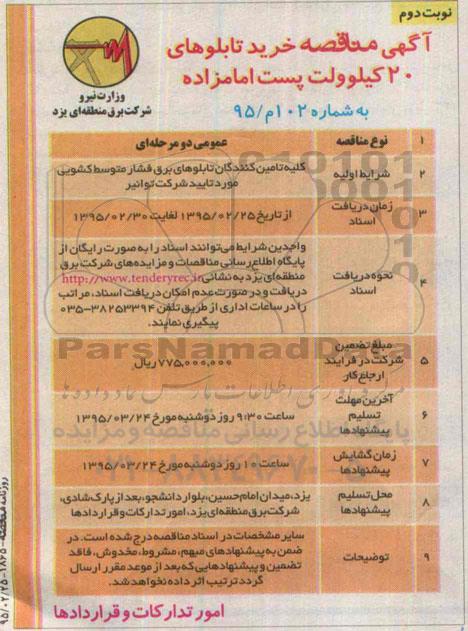 نوبت دوم
آگهی مناقصه خرید تابلوهای
۲۰ کیلوولت پست امامزاده
به شماره ۱۰۲م/۹۵
وزارت نیرو
شرکت برق منطقه‌ای یزد
۱ نوع مناقصه عمومی دو مرحله‌ای
۲ شرایط اولیه کلیه تامین کنندگان تابلوهای برق فشار متوسط کشویی
مورد تایید شرکت توانیر
۳ زمان دریافت
اسناد
از تاریخ ۱۳۹۵/۰۲/۲۵ لغایت ۱۳۹۵/۰۲/۳۰
۴ نحوه دریافت
اسناد
واجدین شرایط می‌توانند اسناد را به صورت رایگان از
پایگاه اطلاع رسانی مناقصات و مزایده‌های شرکت برق
منطقه‌ای یزد به نشانی http://www.tenderyrec.ir
دریافت و در صورت عدم امکان دریافت اسناد، مراتب
را در ساعات اداری از طریق تلفن ۳۸۲۵۳۳۹۴-۰۳۵
پیگیری نمایند.
۵ مبلغ تضمین
شرکت در فرایند
ارجاع کار
۷۷۵,۰۰۰,۰۰۰ ریال
۶ آخرین مهلت
تسلیم
پیشنهادها
ساعت ۹:۳۰ روز دوشنبه مورخ ۱۳۹۵/۰۳/۲۴
۷ زمان گشایش
پیشنهادها
ساعت ۱۰ روز دوشنبه مورخ ۱۳۹۵/۰۳/۲۴
۸ محل تسلیم
پیشنهادها
یزد، میدان امام حسین، بلوار دانشجو، بعد از پارک شادی،
شرکت برق منطقه‌ای یزد، امور تدارکات و قراردادها
۹ توضیحات
سایر مشخصات در اسناد مناقصه درج شده است. در
ضمن به پیشنهادهای مبهم، مشروط، مخدوش، فاقد
تضمین و پیشنهادهایی که بعد از موعد مقرر ارسال
گردد ترتیب اثر داده نخواهد شد.
امور تدارکات و قراردادها
روزنامه مناقصه ۱۸۶۵-۹۵/۰۲/۲۵
ParsNamadData